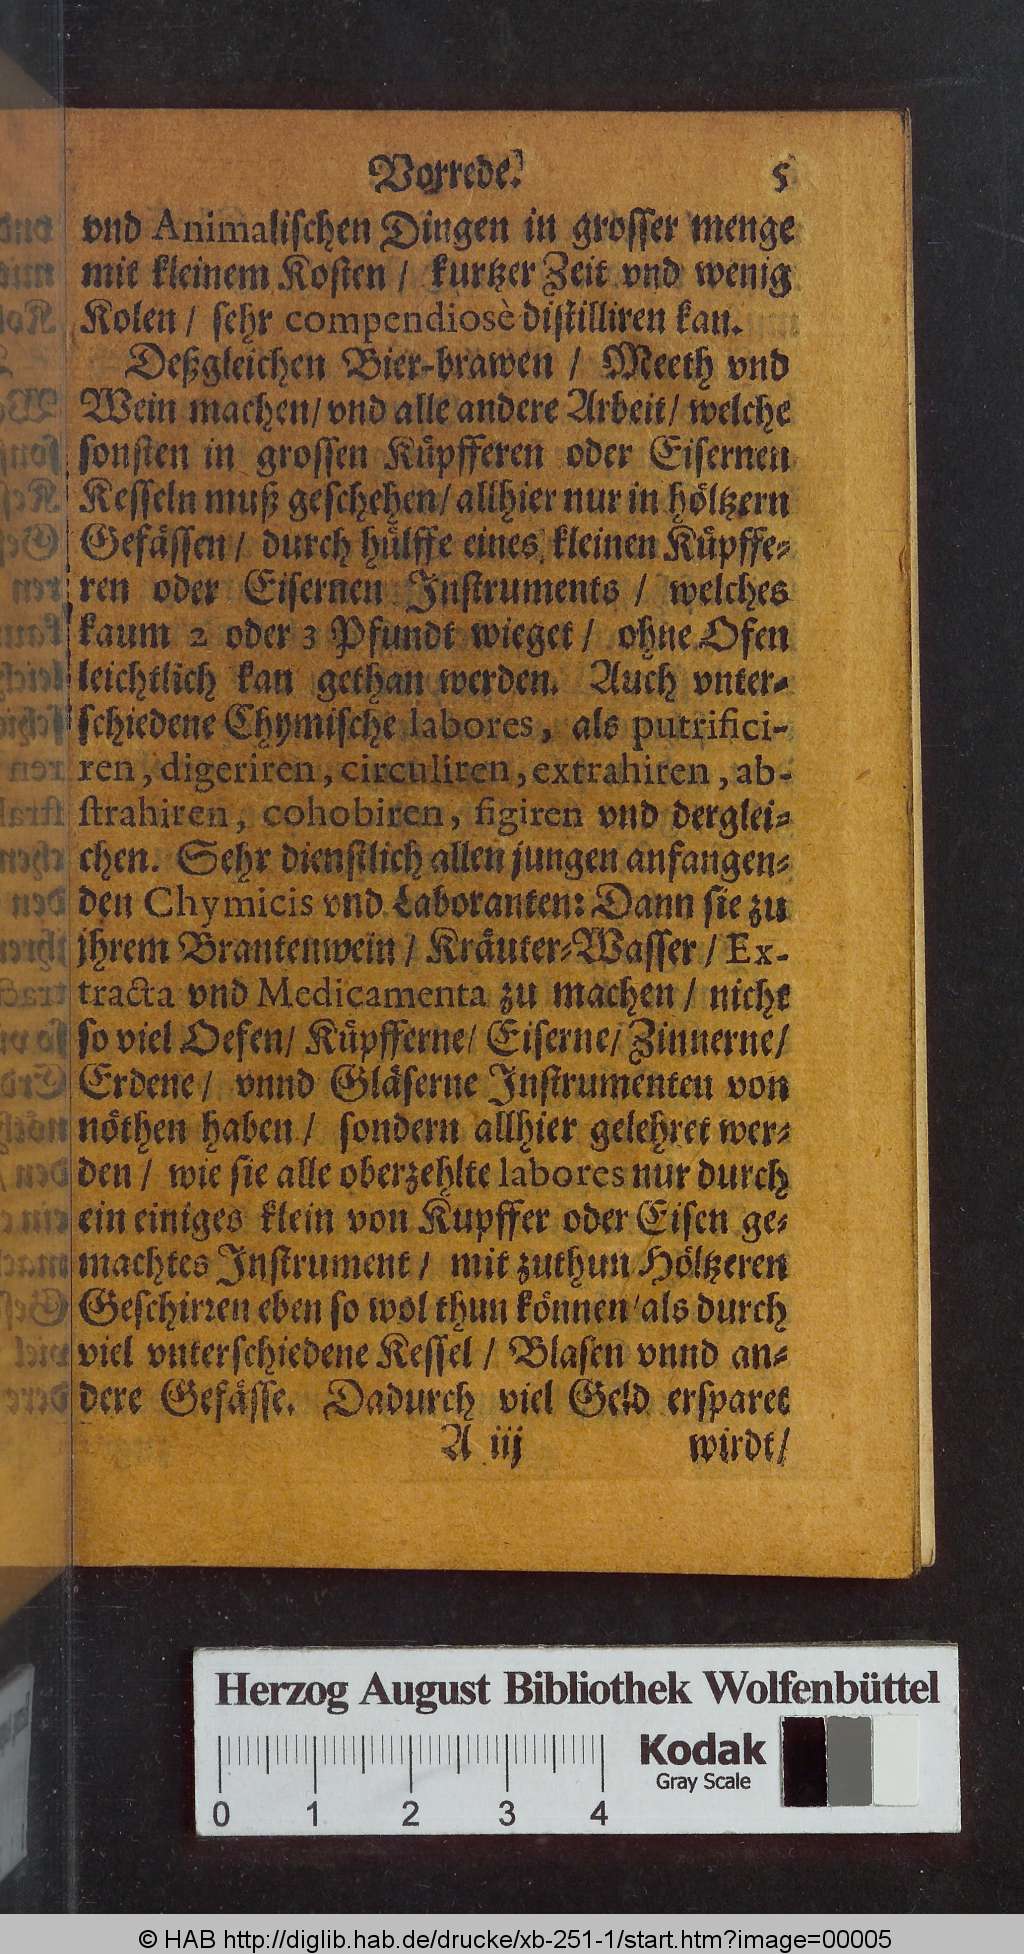 Vorrede. 5
vnd Animalischen Dingen in grosser menge
mit kleinem Kosten / kurtzer Zeit vnd wenig
Kolen / sehr compendiosè distilliren kan.
Deßgleichen Bier-brawen / Meeth vnd
Wein machen / vnd alle andere Arbeit / welche
sonsten in grossen Küpfferen oder Eisernen
Kesseln muß geschehen / allhier nur in höltzern
Gefässen / durch hülffe eines kleinen Küpffe-
ren oder Eisernen Instruments / welches
kaum 2 oder 3 Pfundt wieget / ohne Ofen
leichtlich kan gethan werden. Auch vnter-
schiedene Chymische labores, als putrifici-
ren, digeriren, circuliren, extrahiren, ab-
strahiren, cohobiren, figiren vnd derglei-
chen. Sehr dienstlich allen jungen anfangen-
den Chymicis vnd Laboranten: Dann sie zu
jhrem Brantenwein / Kräuter-Wasser / Ex-
tracta vnd Medicamenta zu machen / nicht
so viel Oefen / Küpfferne / Eiserne / Zinnerne /
Erdene / vnnd Gläserne Instrumenten von
nöthen haben / sondern allhier gelehret wer-
den / wie sie alle oberzehlte labores nur durch
ein einiges klein von Kupffer oder Eisen ge-
machtes Instrument / mit zuthun Höltzeren
Geschirren eben so wol thun können / als durch
viel vnterschiedene Kessel / Blasen vnnd an-
dere Gefässe. Dadurch viel Geld ersparet
A iij wirdt /
Herzog August Bibliothek Wolfenbüttel
Kodak
Gray Scale
0 1 2 3 4
© HAB http://diglib.hab.de/drucke/xb-251-1/start.htm?image=00005